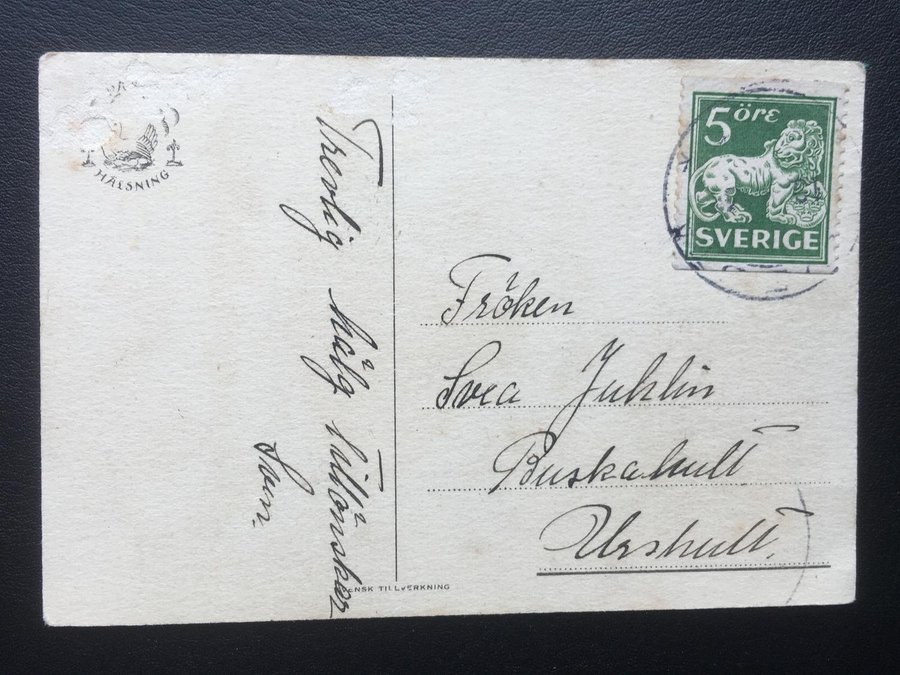 HÄLSNING
Trevlig hälg tillönskar
Sven.
5 öre
SVERIGE
Fröken
Svea Juhlin
Buskahult
Urshult.
TILLVERKNING